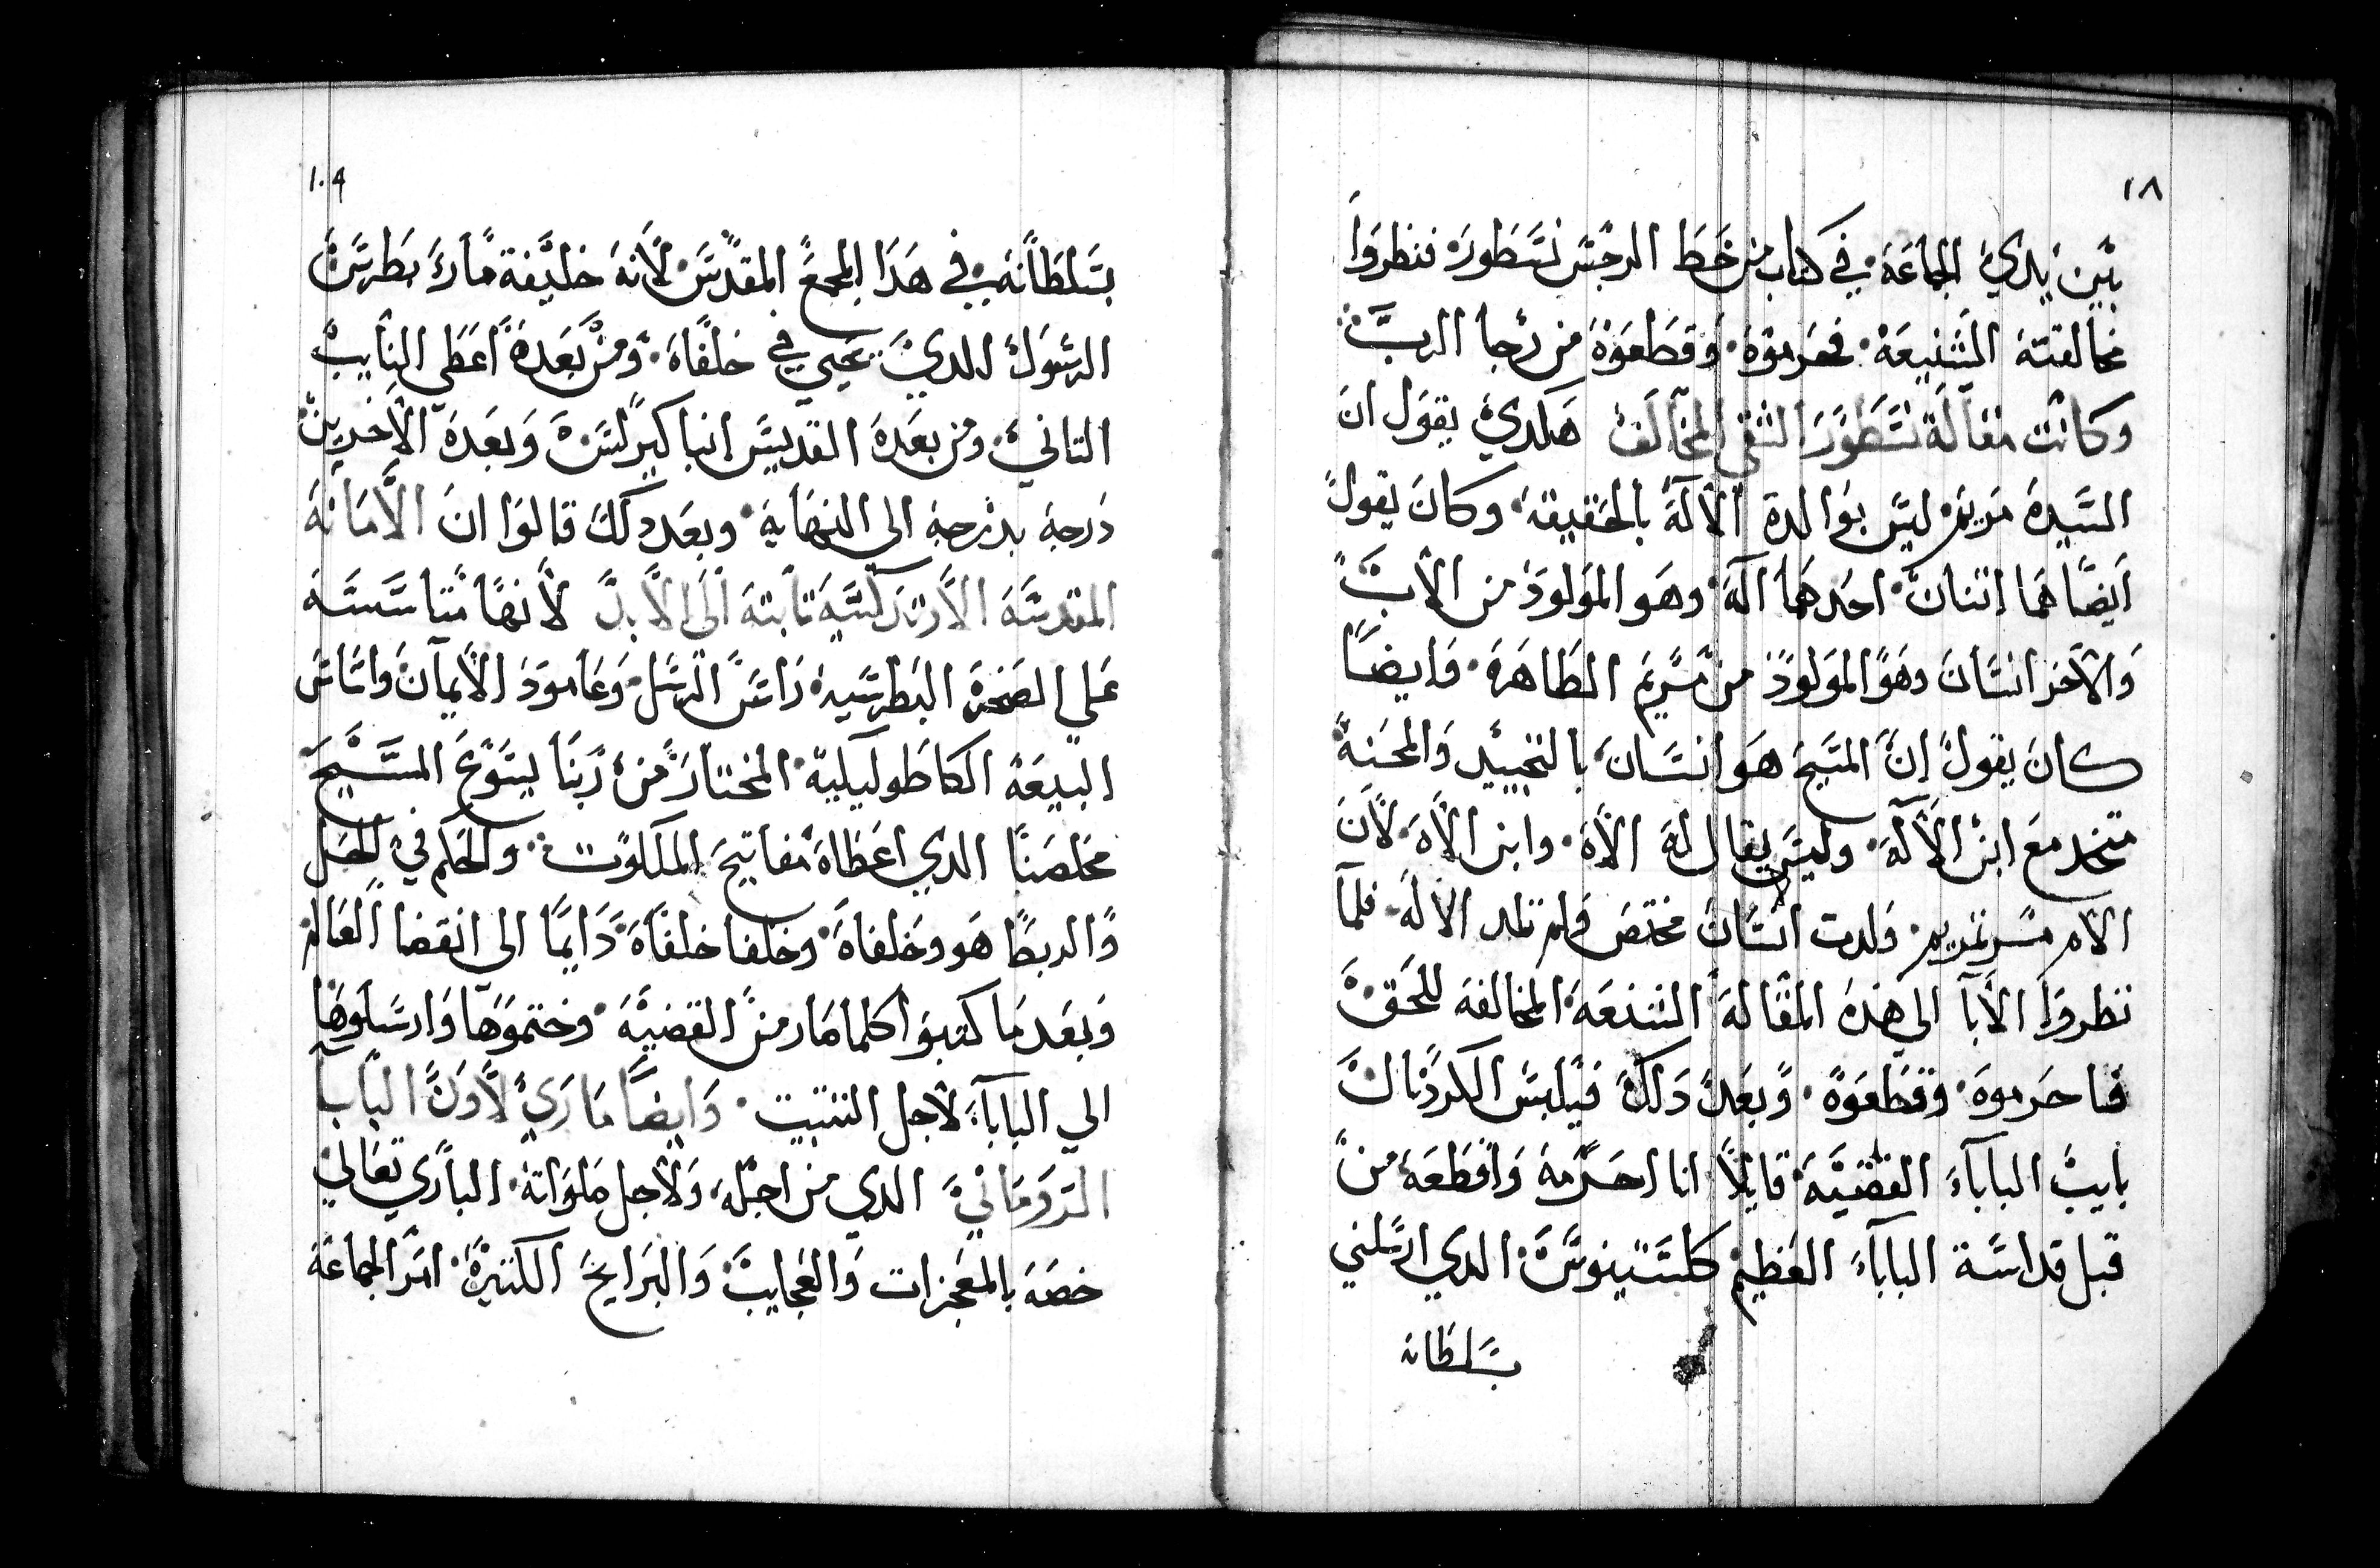 ١٨
بين يدي الجماعة في كتاب من خط الرجس نسطور فنظروا
مخالفته الشنيعة فحرموة وقطعوة من رجا الرب
وكانت مقالة نسطور الشقي المخالف هكدي يقول ان
السيدة مريم ليس بوالدة الالة بالحقيقة وكان يقول
ايضا هما اتنان احدهما الة وهو المولود من الاب
والاخر انسان وهو المولود من مريم الطاهرة وايضا
كان يقول ان المسيح هو انسان بالتجييد والمحنة
متحد مع ابن الالة وليس يقال لة الاة وابن الاة لان
الام مرتمريم ولدت انسان مختص ولم تلد الالة فلما
نظروا الابا الي هذة المقالة الشنعة المخالفة للحق
فاحرموة وقطعوة وبعد دلك فيلبس الكردنال
نايب الباباء القضية قايلا انا احرمة واقطعة من
قبل قداسة الباباء العظيم كلستينوس الدي ارسلني
بسلطانه
١٠٩
بسلطانة في هدا المجمع المقدس لانة خليفة مارك بطرس
الرسول الدي يحيي في خلفاة ومن بعدة اعطي النايب
التاني ومن بعدة القديس انبا كيرلس وبعدة الاخرين
درجة بدرجة الي النهاية وبعد دلك قالوا ان الامانة
المقدسة الارتدكسية تابتة الي الابد لانها متاسسة
علي الصخرة البطرسية راس الرسل وعامود الايمان واساس
البيعة الكاطوليلية المختار من ربنا يسوع المسيح
مخلصنا الدي اعطاة مفاتيح الملكوت والحكم في الحل
والربط هو وخلفاة وخلفا خلفاة دايما الي انقضا العالم
وبعد ما كتبوا كلما صار من القضية وختموها وارسلوها
الي الباباء لاجل التتبيت وايضا ماري لاون البابا
الروماني الدي من اجلة ولاجل صلواتة الباري تعالي
خصة بالمعجزات والعجايب والبرايح الكتيرة امر الجماعة